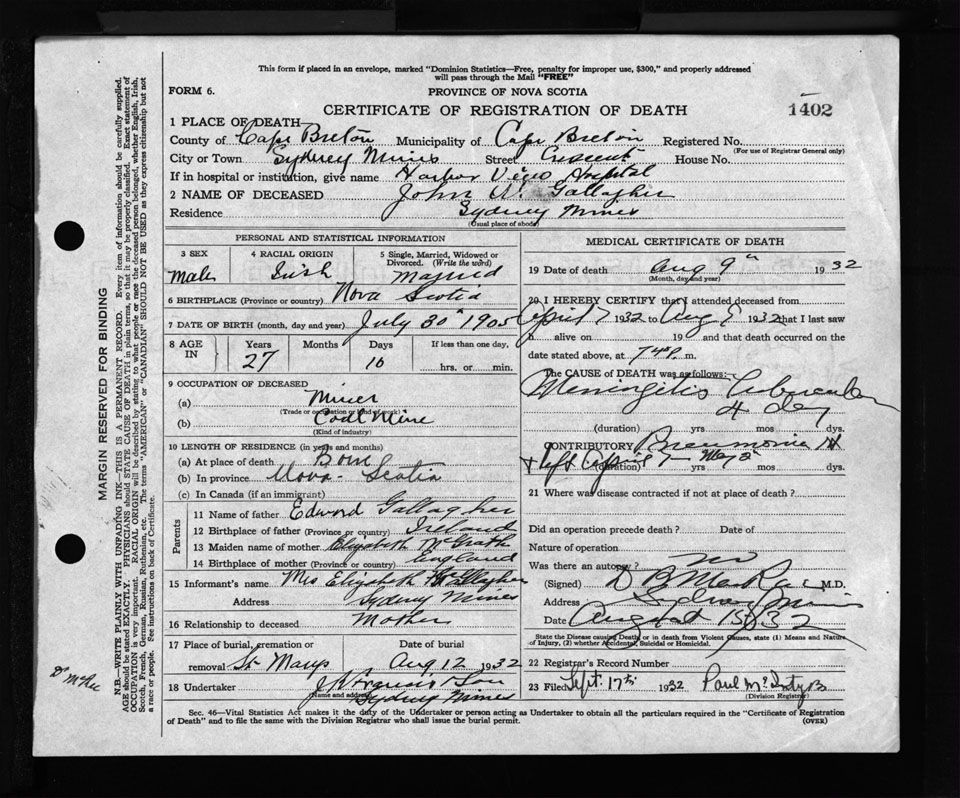 This form if placed in an envelope, marked "Dominion Statistics—Free, penalty for improper use, $300," and properly addressed
will pass through the Mail "FREE"
FORM 6.
PROVINCE OF NOVA SCOTIA
CERTIFICATE OF REGISTRATION OF DEATH
1402
1 PLACE OF DEATH
County of Cape Breton Municipality of Cape Breton Registered No.
(For use of Registrar General only)
City or Town Sydney Mines Street Crescent House No.
If in hospital or institution, give name Harbor View Hospital
2 NAME OF DECEASED John W. Gallagher
Residence Sydney Mines
(Usual place of abode)
PERSONAL AND STATISTICAL INFORMATION
3 SEX
Male
4 RACIAL ORIGIN
Irish
5 Single, Married, Widowed or
Divorced. (Write the word)
Married
6 BIRTHPLACE (Province or country) Nova Scotia
7 DATE OF BIRTH (month, day and year) July 30" 1905
8 AGE IN
Years
27
Months
Days
10
If less than one day,
hrs. or min.
9 OCCUPATION OF DECEASED
(a) Miner
(Trade or occupation or kind of work)
(b) Coal Mine
(Kind of industry)
10 LENGTH OF RESIDENCE (in years and months)
(a) At place of death Born
(b) In province Nova-Scotia
(c) In Canada (if an immigrant)
Parents
11 Name of father Edward Gallagher
12 Birthplace of father (Province or country) Ireland
13 Maiden name of mother Elizabeth McGrath
14 Birthplace of mother (Province or country) England
15 Informant's name Mrs Elizabeth Gallagher
Address Sydney Mines
16 Relationship to deceased Mother
17 Place of burial, cremation or
removal St Marys
Date of burial
Aug 12 1932
18 Undertaker J. Francis & Son
(Name and address) Sydney Mines
MEDICAL CERTIFICATE OF DEATH
19 Date of death Aug 9th 1932
(Month, day and year)
20 I HEREBY CERTIFY that I attended deceased from
April 7 1932 to Aug 9 1932 that I last saw
h alive on 19 and that death occurred on the
date stated above, at m.
The CAUSE of DEATH was as follows:
Meningitis Tubercular
4 day
(duration) yrs mos dys.
CONTRIBUTORY Pneumonia
left April 7 May 2
(duration) yrs mos dys.
21 Where was disease contracted if not at place of death?
Did an operation precede death? Date of
Nature of operation
Was there an autopsy? no
(Signed) D B MacRae M.D.
Address Sydney Mines
Date August 15/32
State the Disease causing Death, or in death from Violent Causes, state (1) Means and Nature
of Injury, (2) whether Accidental, Suicidal or Homicidal.
22 Registrar's Record Number
23 Filed Sept. 17th 1932
(Division Registrar)
Sec. 46—Vital Statistics Act makes it the duty of the Undertaker or person acting as Undertaker to obtain all the particulars required in the "Certificate of Registration
of Death" and to file the same with the Division Registrar who shall issue the burial permit.
(OVER)
MARGIN RESERVED FOR BINDING
N.B.—WRITE PLAINLY WITH UNFADING INK—THIS IS A PERMANENT RECORD. Every item of information should be carefully supplied.
AGE should be stated EXACTLY. PHYSICIANS should STATE CAUSE OF DEATH in plain terms, so that it may be properly classified. Exact statement of
OCCUPATION is very important. RACIAL ORIGIN will be described by stating to what people or race the deceased person belonged, whether English, Irish,
Scotch, French, German, Russian, Ruthenian, etc. The terms "AMERICAN" or "CANADIAN" SHOULD NOT BE USED as they express citizenship but not
a race or people. See instructions on back of Certificate.